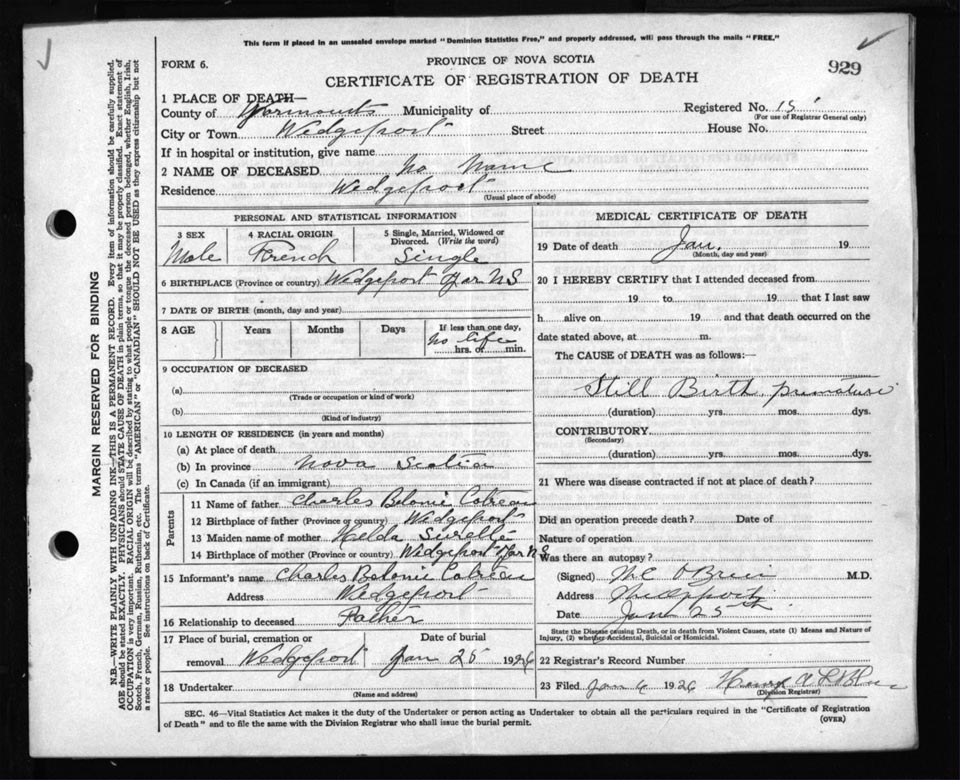 This form if placed in an unsealed envelope marked "Dominion Statistics Free," and properly addressed, will pass through the mails "FREE."
FORM 6.
PROVINCE OF NOVA SCOTIA
929
CERTIFICATE OF REGISTRATION OF DEATH
1 PLACE OF DEATH—
County of Yarmouth Municipality of Registered No. 15
(For use of Registrar General only)
City or Town Wedgeport Street House No.
If in hospital or institution, give name
2 NAME OF DECEASED No Name
Residence Wedgeport
(Usual place of abode)
PERSONAL AND STATISTICAL INFORMATION
3 SEX 4 RACIAL ORIGIN 5 Single, Married, Widowed or
Divorced. (Write the word)
Male French Single
6 BIRTHPLACE (Province or country) Wedgeport Yar NS
7 DATE OF BIRTH (month, day and year)
8 AGE Years Months Days If less than one day,
no life
hrs. or min.
9 OCCUPATION OF DECEASED
(a)
(Trade or occupation or kind of work)
(b)
(Kind of industry)
10 LENGTH OF RESIDENCE (in years and months)
(a) At place of death
(b) In province Nova Scotia
(c) In Canada (if an immigrant)
Parents
11 Name of father Charles Belonie
12 Birthplace of father (Province or country) Wedgeport
13 Maiden name of mother Helda Surette
14 Birthplace of mother (Province or country) Wedgeport Yar NS
15 Informant's name Charles Belonie
Address Wedgeport
16 Relationship to deceased Father
17 Place of burial, cremation or Date of burial
removal Wedgeport Jan 25 1926
18 Undertaker
(Name and address)
MEDICAL CERTIFICATE OF DEATH
19 Date of death Jan. 19
(Month, day and year)
20 I HEREBY CERTIFY that I attended deceased from
19 to 19 that I last saw
h alive on 19 and that death occurred on the
date stated above, at m.
The CAUSE OF DEATH was as follows:—
Still Birth premature
(duration) yrs. mos. dys.
CONTRIBUTORY
(Secondary)
(duration) yrs. mos. dys.
21 Where was disease contracted if not at place of death?
Did an operation precede death? Date of
Nature of operation
Was there an autopsy?
(Signed) O'Brien M.D.
Address
Date Jan 25th
State the Disease causing Death, or in death from Violent Causes, state (1) Means and Nature of
Injury, (2) whether Accidental, Suicidal or Homicidal.
22 Registrar's Record Number
23 Filed Jan 6 1926
(Division Registrar)
SEC. 46—Vital Statistics Act makes it the duty of the Undertaker or person acting as Undertaker to obtain all the particulars required in the "Certificate of Registration
of Death" and to file the same with the Division Registrar who shall issue the burial permit.
(OVER)
MARGIN RESERVED FOR BINDING
N.B.—WRITE PLAINLY WITH UNFADING INK—THIS IS A PERMANENT RECORD. Every item of information should be carefully supplied.
AGE should be stated EXACTLY. PHYSICIANS should STATE CAUSE OF DEATH in plain terms, so that it may be properly classified. Exact statement of
OCCUPATION is very important. RACIAL ORIGIN will be described by stating to what people or tongue the deceased person belonged, whether English, Irish,
Scotch, French, German, Russian, Ruthenian, etc. The terms "AMERICAN" or "CANADIAN" SHOULD NOT BE USED as they express citizenship but not
a race or people. See instructions on back of Certificate.